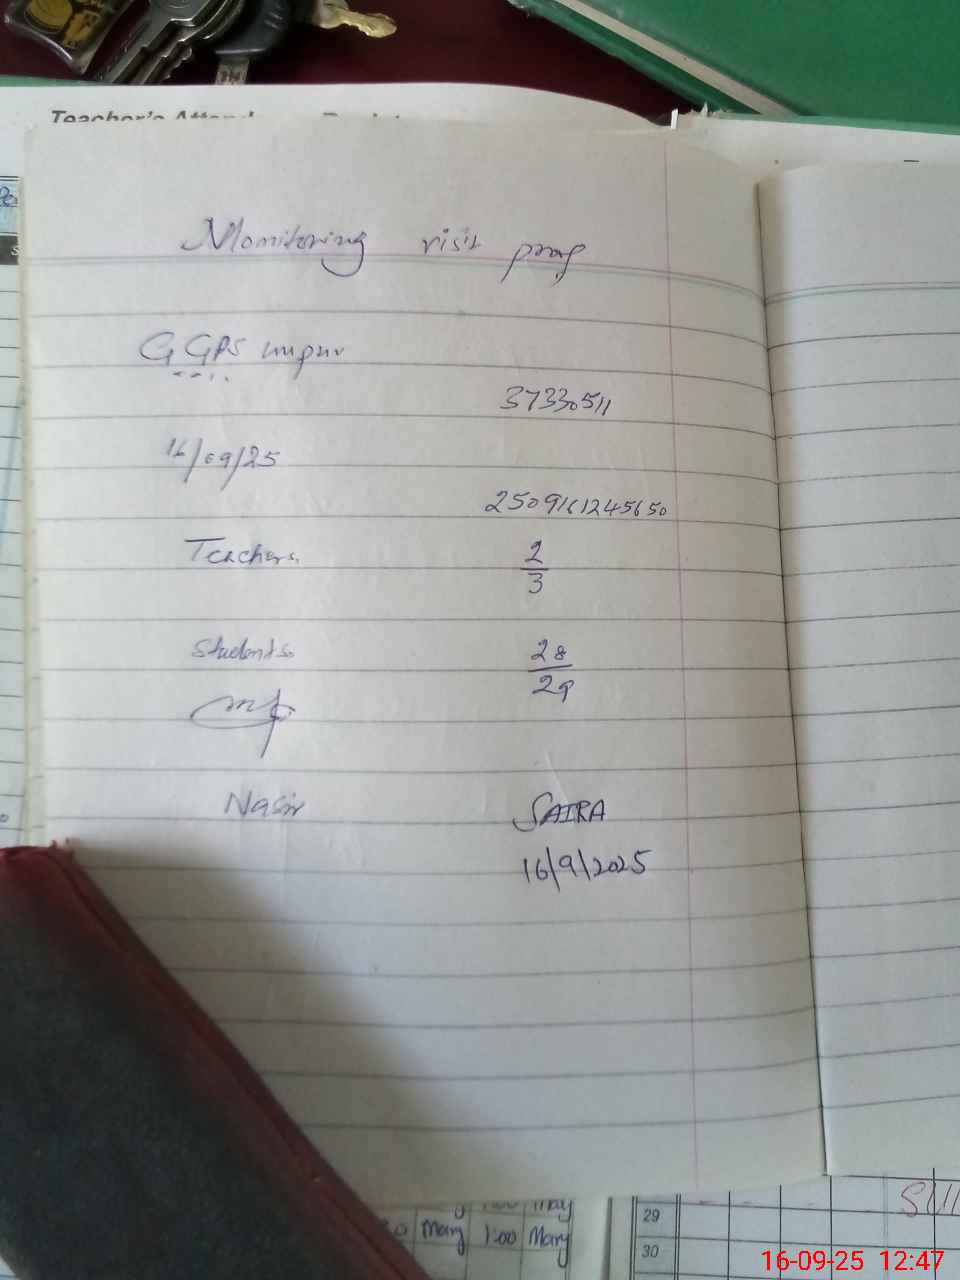 Teacher's
Monitoring visit proof
GGPS
37330511
16/09/25
2509161245650
Teachers
2
3
Students
28
29
Nasir
SAIRA
16/9/2025
1:00
29
30
16-09-25 12:47